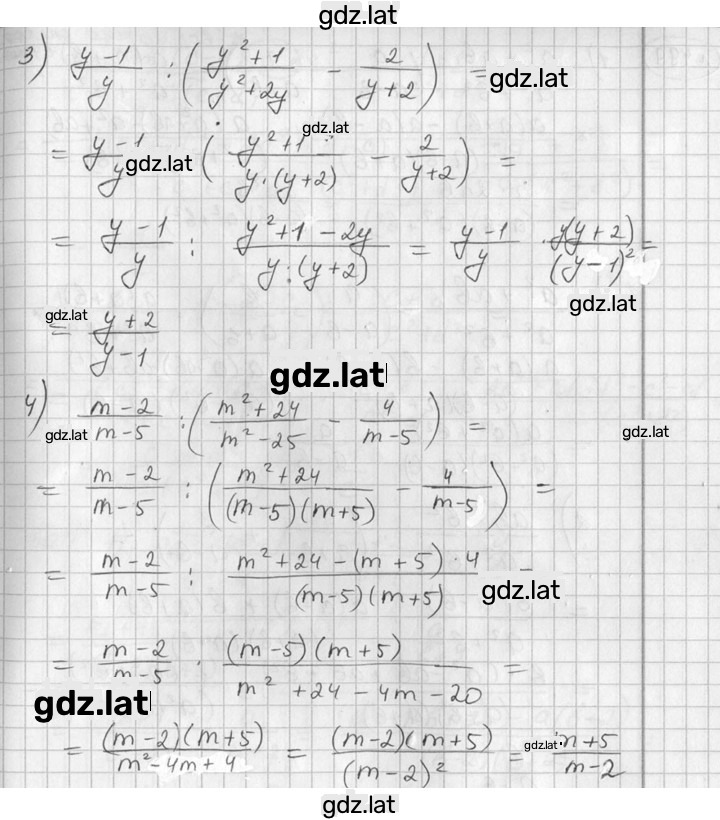 gdz.lat
3) \frac{y-1}{y} : \left( \frac{y^2+1}{y^2+2y} - \frac{2}{y+2} \right) = gdz.lat
gdz.lat
= \frac{y-1}{y} gdz.lat \left( \frac{y^2+1}{y \cdot (y+2)} - \frac{2}{y+2} \right) =
= \frac{y-1}{y} : \frac{y^2+1-2y}{y \cdot (y+2)} = \frac{y-1}{y} \cdot \frac{y(y+2)}{(y-1)^2} =
gdz.lat
gdz.lat
= \frac{y+2}{y-1}
gdz.lat
4) \frac{m-2}{m-5} : \left( \frac{m^2+24}{m^2-25} - \frac{4}{m-5} \right) =
gdz.lat gdz.lat
= \frac{m-2}{m-5} : \left( \frac{m^2+24}{(m-5)(m+5)} - \frac{4}{m-5} \right) =
= \frac{m-2}{m-5} : \frac{m^2+24-(m+5) \cdot 4}{(m-5)(m+5)} =
gdz.lat
= \frac{m-2}{m-5} \cdot \frac{(m-5)(m+5)}{m^2+24-4m-20} =
gdz.lat
= \frac{(m-2)(m+5)}{m^2-4m+4} = \frac{(m-2)(m+5)}{(m-2)^2} = gdz.lat \frac{m+5}{m-2}
gdz.lat